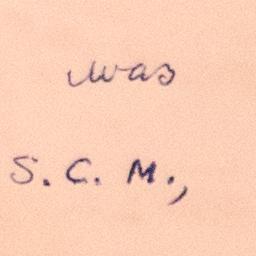 was
S. C. M.,